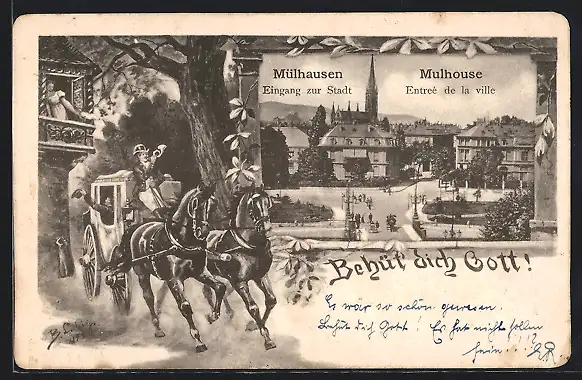 Mülhausen
Eingang zur Stadt
Mulhouse
Entreé de la ville
Behüt dich Gott!
Es wär so schön gewesen.
Behüt dich Gott! Es hat nicht sollen
sein....!